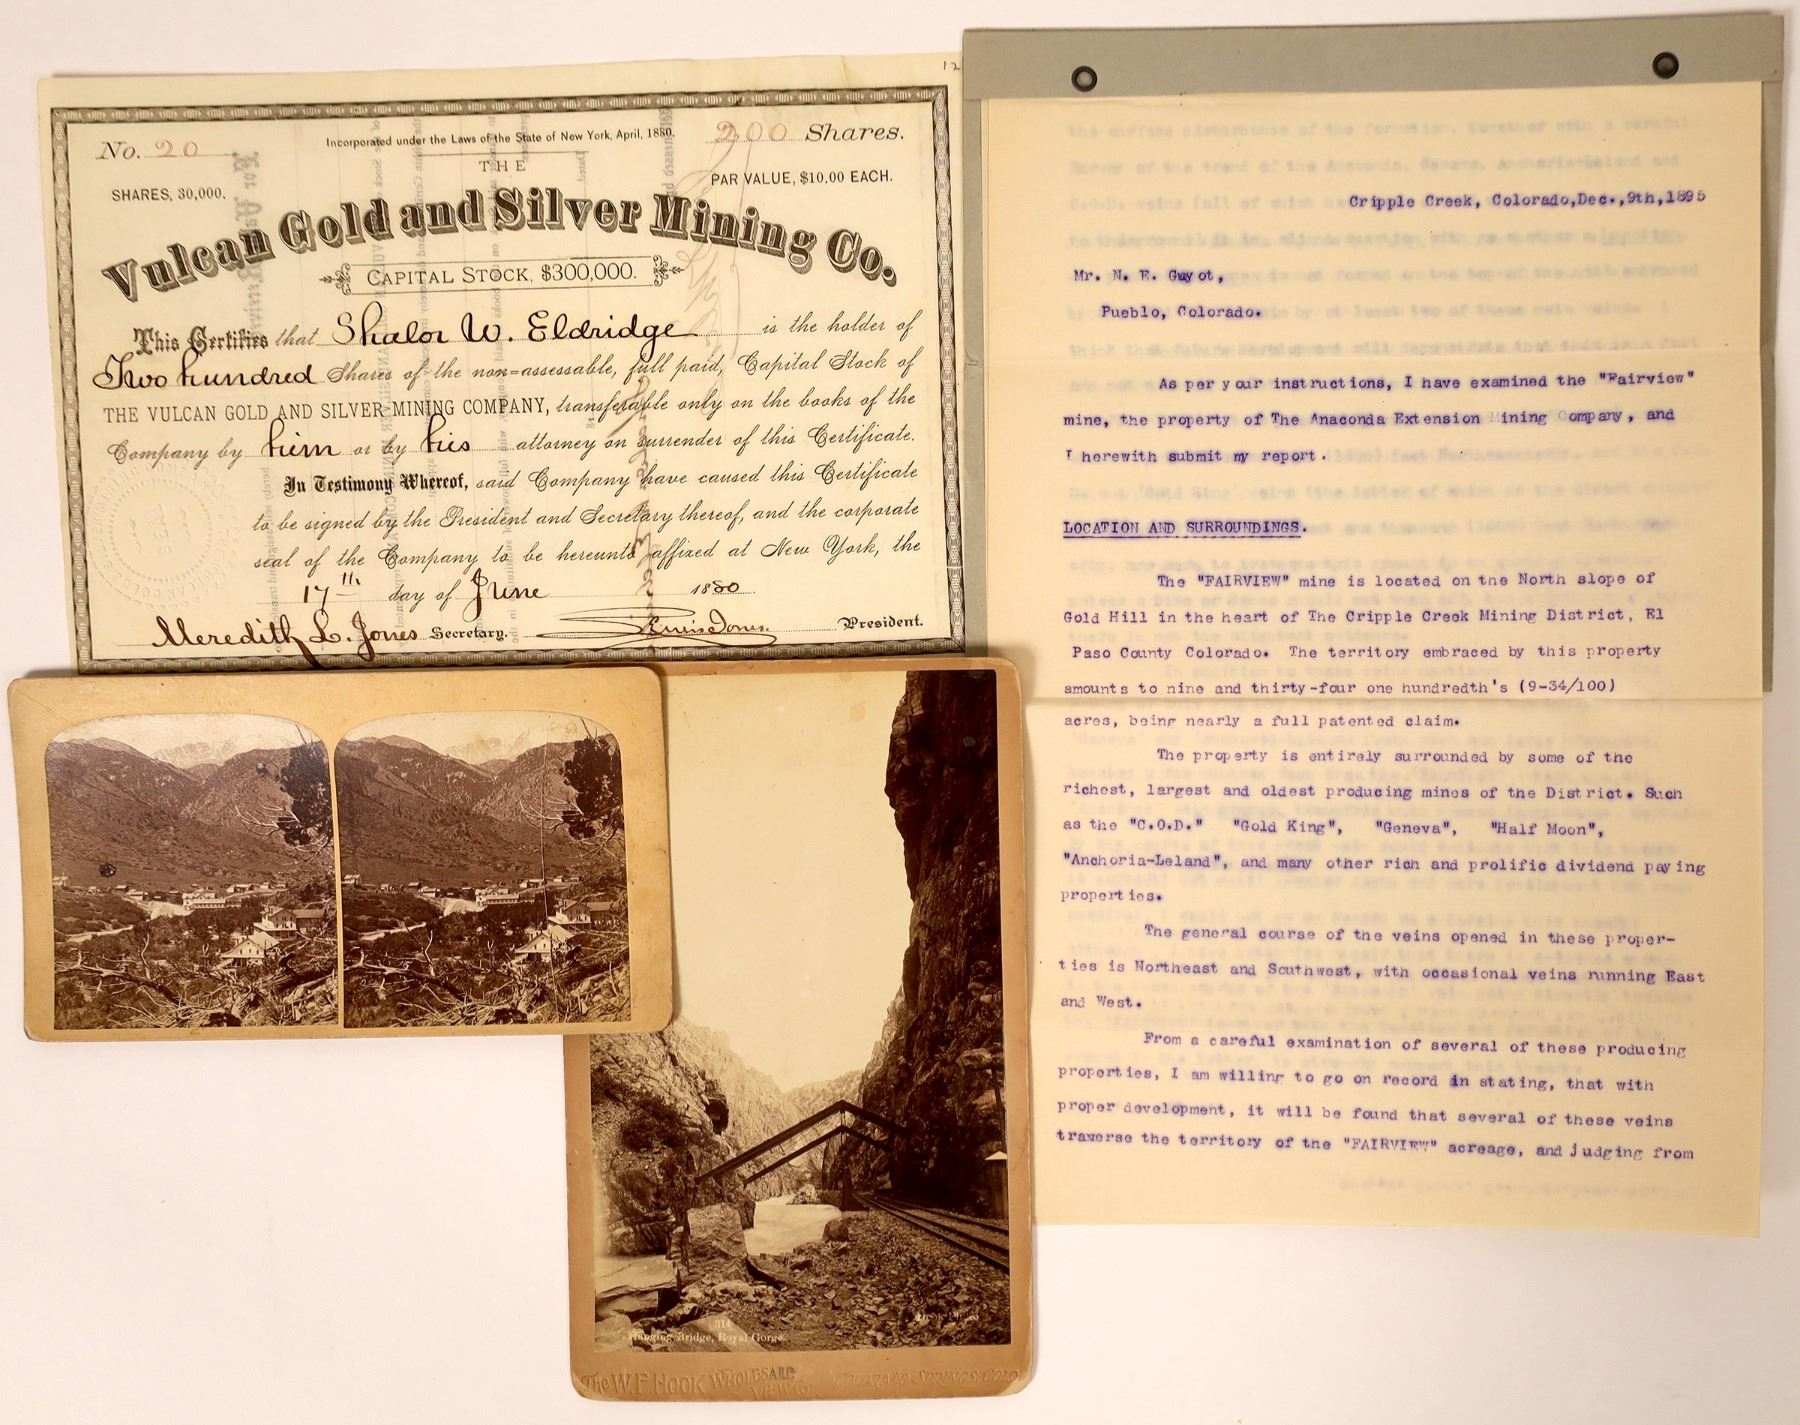 12
No. 20
Incorporated under the Laws of the State of New York, April, 1880.
200 Shares.
THE
SHARES, 30,000.
PAR VALUE, $10.00 EACH.
Vulcan Gold and Silver Mining Co.
CAPITAL STOCK, $300,000.
This Certifies that Shalor W. Eldridge is the holder of
Two hundred Shares of the non=assessable, full paid, Capital Stock of
THE VULCAN GOLD AND SILVER MINING COMPANY, transferable only on the books of the
Company by him or by his attorney on surrender of this Certificate.
In Testimony Whereof, said Company have caused this Certificate
to be signed by the President and Secretary thereof, and the corporate
seal of the Company to be hereunto affixed at New York, the
17th day of June 1880.
Meredith L. Jones Secretary. President.
SEAL
314
Hanging Bridge, Royal Gorge.
The W.E. HOOK WHOLESALE VIEW CO. COLORADO SPRINGS, COLO.
Cripple Creek, Colorado,Dec.,9th,1895
Mr. N. E. Guyot,
Pueblo, Colorado.
As per your instructions, I have examined the "Fairview"
mine, the property of The Anaconda Extension Mining Company, and
I herewith submit my report.
LOCATION AND SURROUNDINGS.
The "FAIRVIEW" mine is located on the North slope of
Gold Hill in the heart of The Cripple Creek Mining District, El
Paso County Colorado. The territory embraced by this property
amounts to nine and thirty-four one hundredth's (9-34/100)
acres, being nearly a full patented claim.
The property is entirely surrounded by some of the
richest, largest and oldest producing mines of the District. Such
as the "C.O.D." "Gold King", "Geneva", "Half Moon",
"Anchoria-Leland", and many other rich and prolific dividend paying
properties.
The general course of the veins opened in these proper-
ties is Northeast and Southwest, with occasional veins running East
and West.
From a careful examination of several of these producing
properties, I am willing to go on record in stating, that with
proper development, it will be found that several of these veins
traverse the territory of the "FAIRVIEW" acreage, and judging from